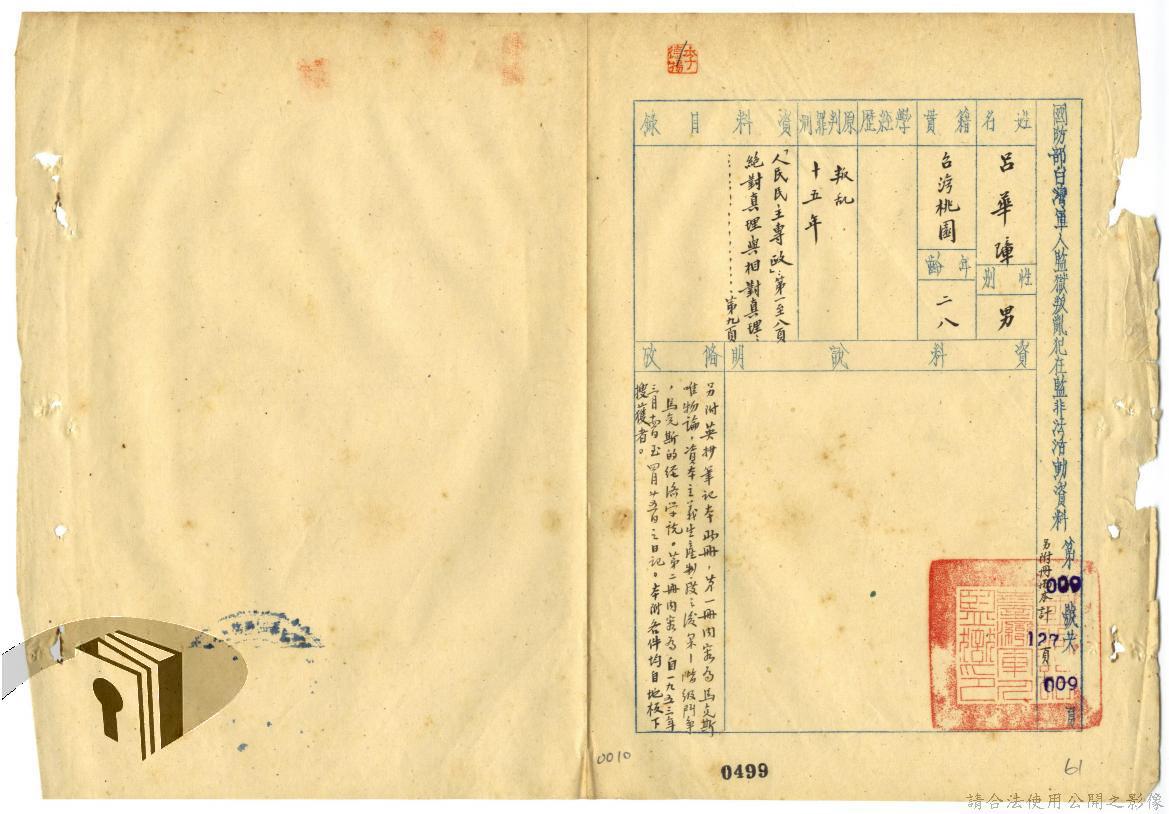 國防部台灣軍人監獄叛亂犯在監非法活動資料 第009號共009頁
另附冊 計127頁
姓名
呂華璋
性別
男
籍貫
台湾桃園
年齡
二八
學經歷
原判罪刑
叛乱
十五年
資料目錄
「人民民主專政」:第一至八頁
絕對真理與相對真理:
………………第九頁
資料說明
備攷
另附英抄筆記本 冊,第一冊內容為馬克斯
唯物論,資本主義生產制段之後果—階級鬥爭
,馬克斯的經濟学說。第二冊內容為自一九五三年
三月 日至四月廿五日之日記。本附各件均自地板下
搜獲者。
0010
0499
61
請合法使用公開之影像